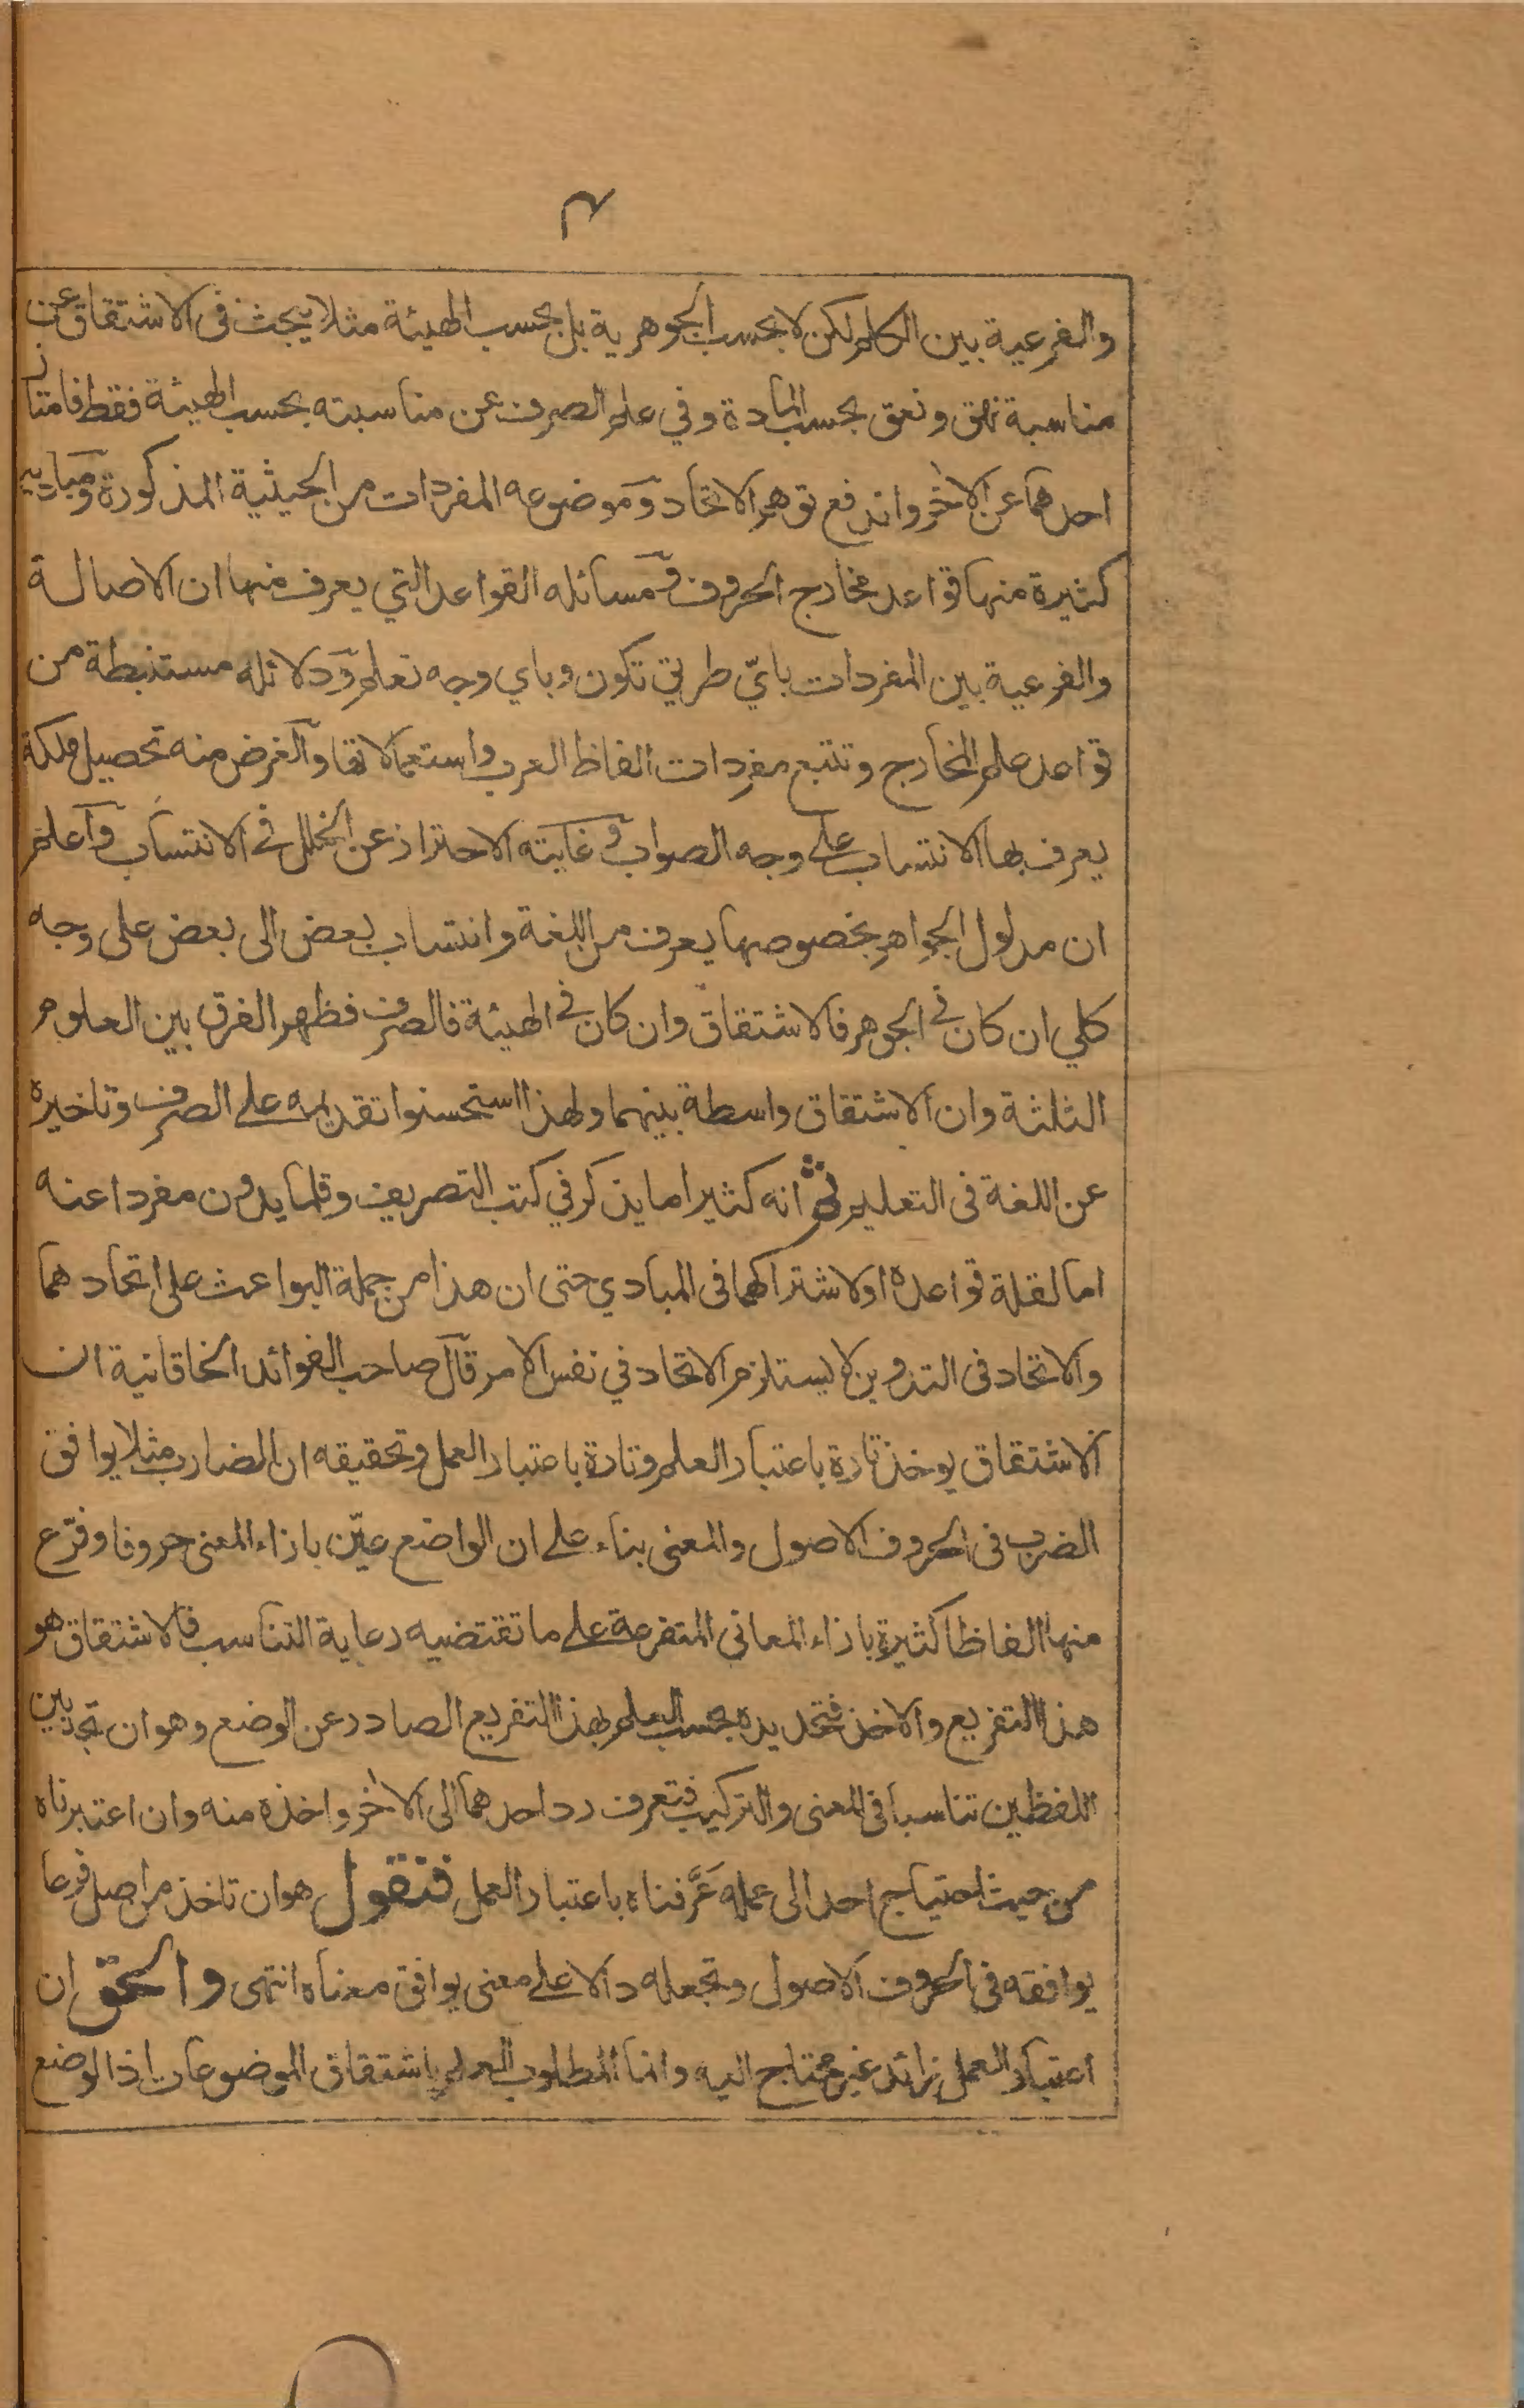 ٣
والفرعية بين الكلم لكن لا بحسب الجوهرية بل بحسب الهيئة مثلا يبحث في الاشتقاق عن
مناسبة نهق ونعق بحسب المادة وفي علم الصرف عن مناسبته بحسب الهيئة فقط فامتاز
احدهما عن الآخر واندفع توهم الاتحاد وموضوعه المفردات من الحيثية المذكورة ومباديه
كثيرة منها قواعد مخارج الحروف ومسائله القواعد التي يعرف منها ان الاصالة
والفرعية بين المفردات بايّ طريق تكون وباي وجه تعلم ودلائله مستنبطة من
قواعد علم المخارج وتتبع مفردات الفاظ العرب واستعمالاتها والغرض منه تحصيل ملكة
يعرف بها الانتساب على وجه الصواب وغايته الاحتراز عن الخلل في الانتساب واعلم
ان مدلول الجواهر بخصوصها يعرف من اللغة وانتساب بعض الى بعض على وجه
كلي ان كان في الجوهر فالاشتقاق وان كان في الهيئة فالصرف فظهر الفرق بين العلوم
الثلثة وان الاشتقاق واسطة بينهما ولهذا استحسنوا تقديمه على الصرف وتاخيره
عن اللغة في التعليم ثم انه كثيرا ما يذكر في كتب التصريف وقلما يدون مفردا عنه
اما لقلة قواعده او لاشتراكهما في المبادي حتى ان هذا من جملة البواعث على اتحادهما
والاتحاد في التدوين لا يستلزم الاتحاد في نفس الامر قال صاحب الفوائد الخاقانية ان
الاشتقاق يوخذ تارة باعتبار العلم وتارة باعتبار العمل وتحقيقه ان الضارب مثلا يوافق
الضرب في الحروف الاصول والمعنى بناء على ان الواضع عيّن بازاء المعنى حروفا وفرّع
منها الفاظا كثيرة بازاء المعاني المتفرعة على ما تقتضيه رعاية التناسب فالاشتقاق هو
هذا التفريع والاخذ فتحديده بحسب العلم بهذا التفريع الصادر عن الوضع وهو ان تجد بين
اللفظين تناسبا في المعنى والتركيب فتعرف رد احدهما الى الآخر واخذه منه وان اعتبرناه
من حيث احتياج احد الى عمله عَرَّفناه باعتبار العمل فنقول هو ان تاخذ من اصل فرعا
يوافقه في الحروف الاصول وتجعله دالا على معنى يوافق معناه انتهى والحق ان
اعتبار العمل زائد غير محتاج اليه وانما المطلوب العلم باشتقاق الموضوعات اذ الوضع